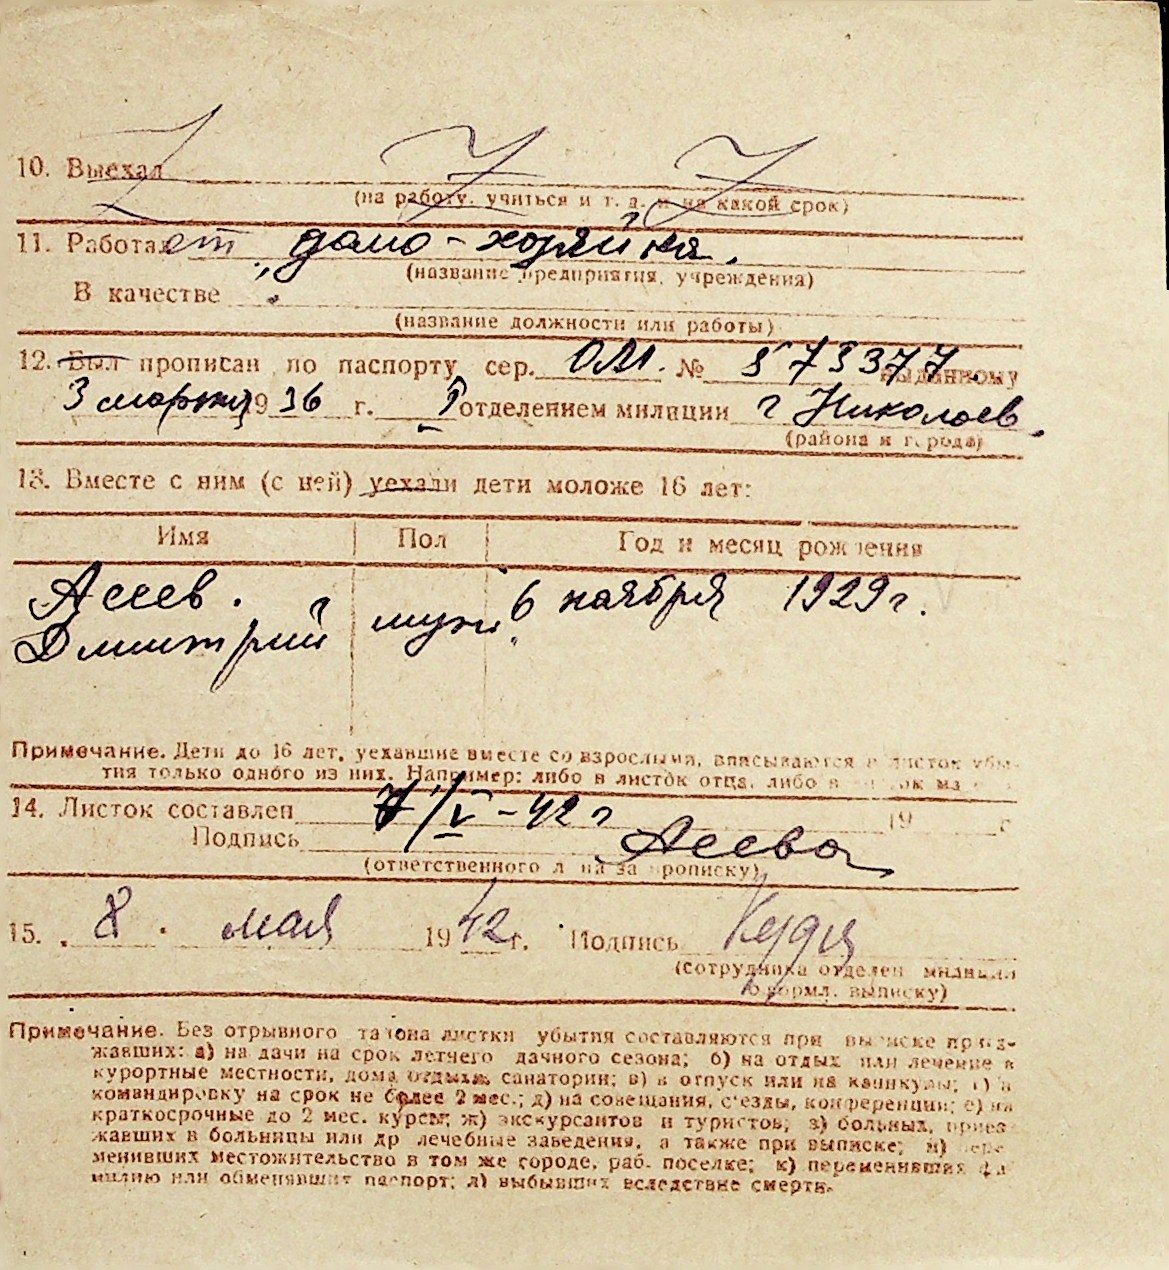 10. Выехал
(на работу, учиться и т. д. и на какой срок)
11. Работает „домо-хозяйка.
(название предприятия, учреждения)
В качестве
(название должности или работы)
12. Был прописан по паспорту сер. ОМ. № 573377 выданному
3 марта 1936 г. I отделением милиции г Николаев.
(района и города)
13. Вместе с ним (с ней) уехали дети моложе 16 лет:
Имя Пол Год и месяц рождения
Асеев. муж. 6 ноября 1929 г.
Дмитрий
Примечание. Дети до 16 лет, уехавшие вместе со взрослыми, вписываются в листок убы-
тия только одного из них. Например: либо в листок отца, либо в листок ма
14. Листок составлен 7/V-42 г 19 г
Подпись Асеева
(ответственного лица за прописку)
15. 8. мая 1942 г. Подпись
(сотрудника отделен милиции
оформл. выписку)
Примечание. Без отрывного талона листки убытия составляются при выписке приез-
жавших: а) на дачи на срок летнего дачного сезона; б) на отдых или лечение в
курортные местности, дома отдыха, санатории; в) в отпуск или на каникулы; г) в
командировку на срок не более 2 мес.; д) на совещания, съезды, конференции; е) на
краткосрочные до 2 мес. курсы; ж) экскурсантов и туристов; з) больных, приез
жавших в больницы или др лечебные заведения, а также при выписке; и) пере
менивших местожительство в том же городе, раб. поселке; к) переменивших фа
милию или обменявших паспорт; л) выбывших вследствие смерти.